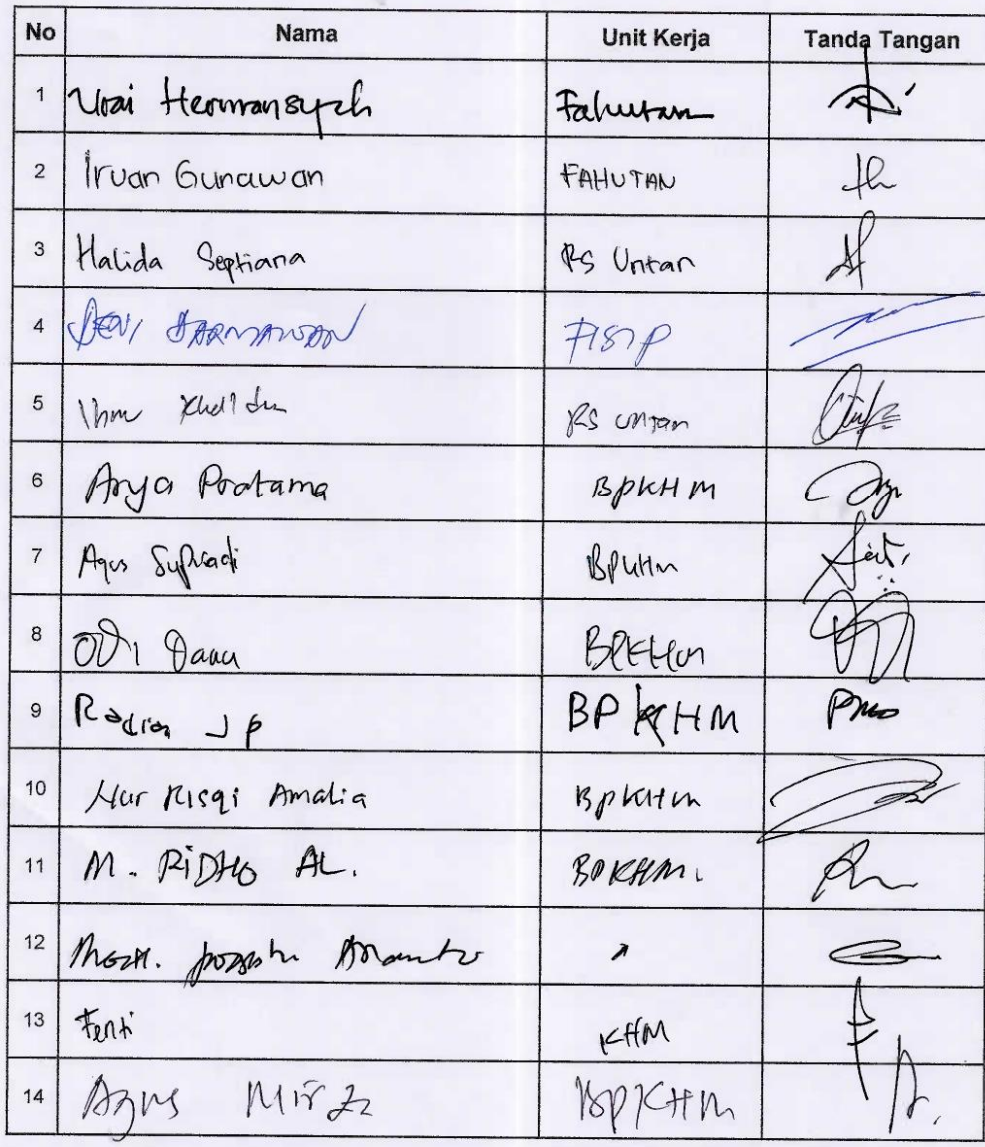 No Nama Unit Kerja Tanda Tangan
1 Urai Hermansyah Fahutan
2 Iruan Gunawan FAHUTAN
3 Halida Septiana RS Untan
4 DEVI DARMAWAN FISIP
5 RS Untan
6 Arya Pratama BPKHM
7 Agus Supriadi BPKHM
8 Odi BPKHM
9 Radian JP BP KHM
10 Nur Risqi Amalia BpKHM
11 M. RiDHO AL. BPKHM.
12
13 Fenti KHM
14 Agus Mirza BpKHM